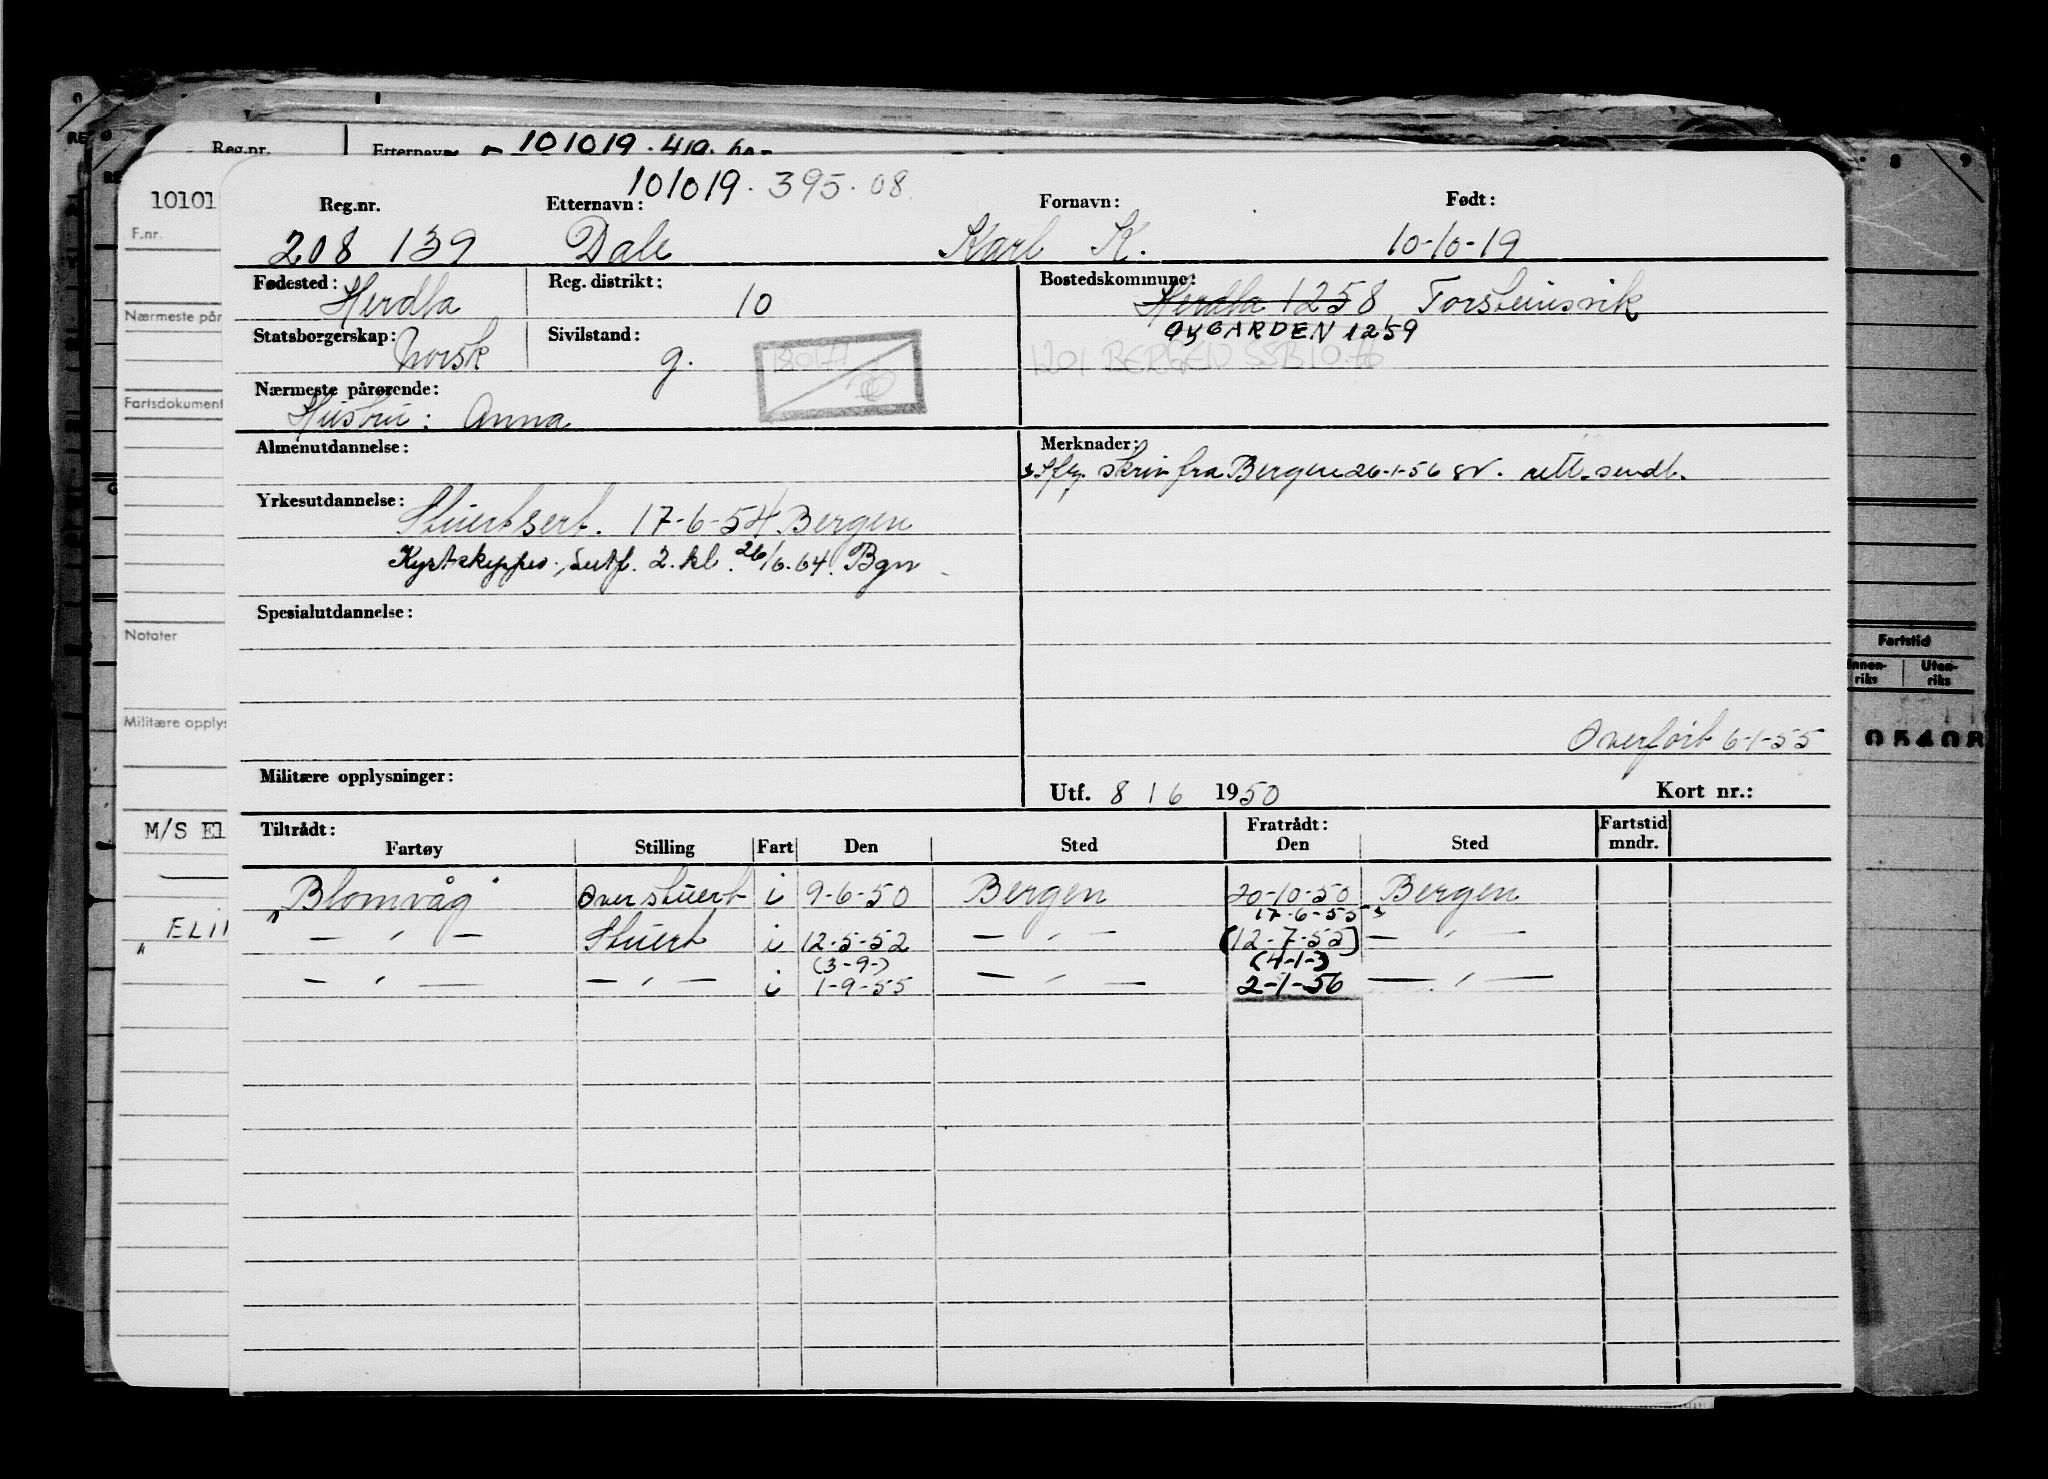 Reg.nr. Etternavn 101019.419.
101019.395.08
10101 Reg.nr. Etternavn: Fornavn: Født:
F.nr. 208 139 Dale Karl K. 10-10-19
Fødested: Herdla Reg. distrikt: 10 Bostedskommune: Herdla 1258 Torsteinsvik
Nærmeste på
ØYGARDEN 1259
Statsborgerskap: Norsk Sivilstand: g. 1201 BERGEN SSB 10.76
Nærmeste pårørende:
Fartsdokument
Hustru: Anna
Almenutdannelse: Merknader:
skriv fra Bergen 26-1-56 rett. sendt.
Yrkesutdannelse: Stuertsert. 17-6-54 Bergen
Kystskipper, Sertf. 2. kl. 26/6.64. Bgn
Spesialutdannelse:
Notater
Fartstid
Innen-riks Uten-riks
Militære opplys
Overført 6-1-55
05408
Militære opplysninger: Utf. 8 / 6 1950 Kort nr.:
M/S El
Tiltrådt: Fratrådt: Fartstid
Fartøy Stilling Fart Den Sted Den Sted mndr.
"Blomvåg" Overstuert i 9-6-50 Bergen 20-10-50 Bergen
17-6-55
— " — Stuert i 12-5-52 — " — (12-7-55) — " —
(3-9-) (4-1-)
— " — — " — i 1-9-55 — " — 2-1-56 — " —
" ELI